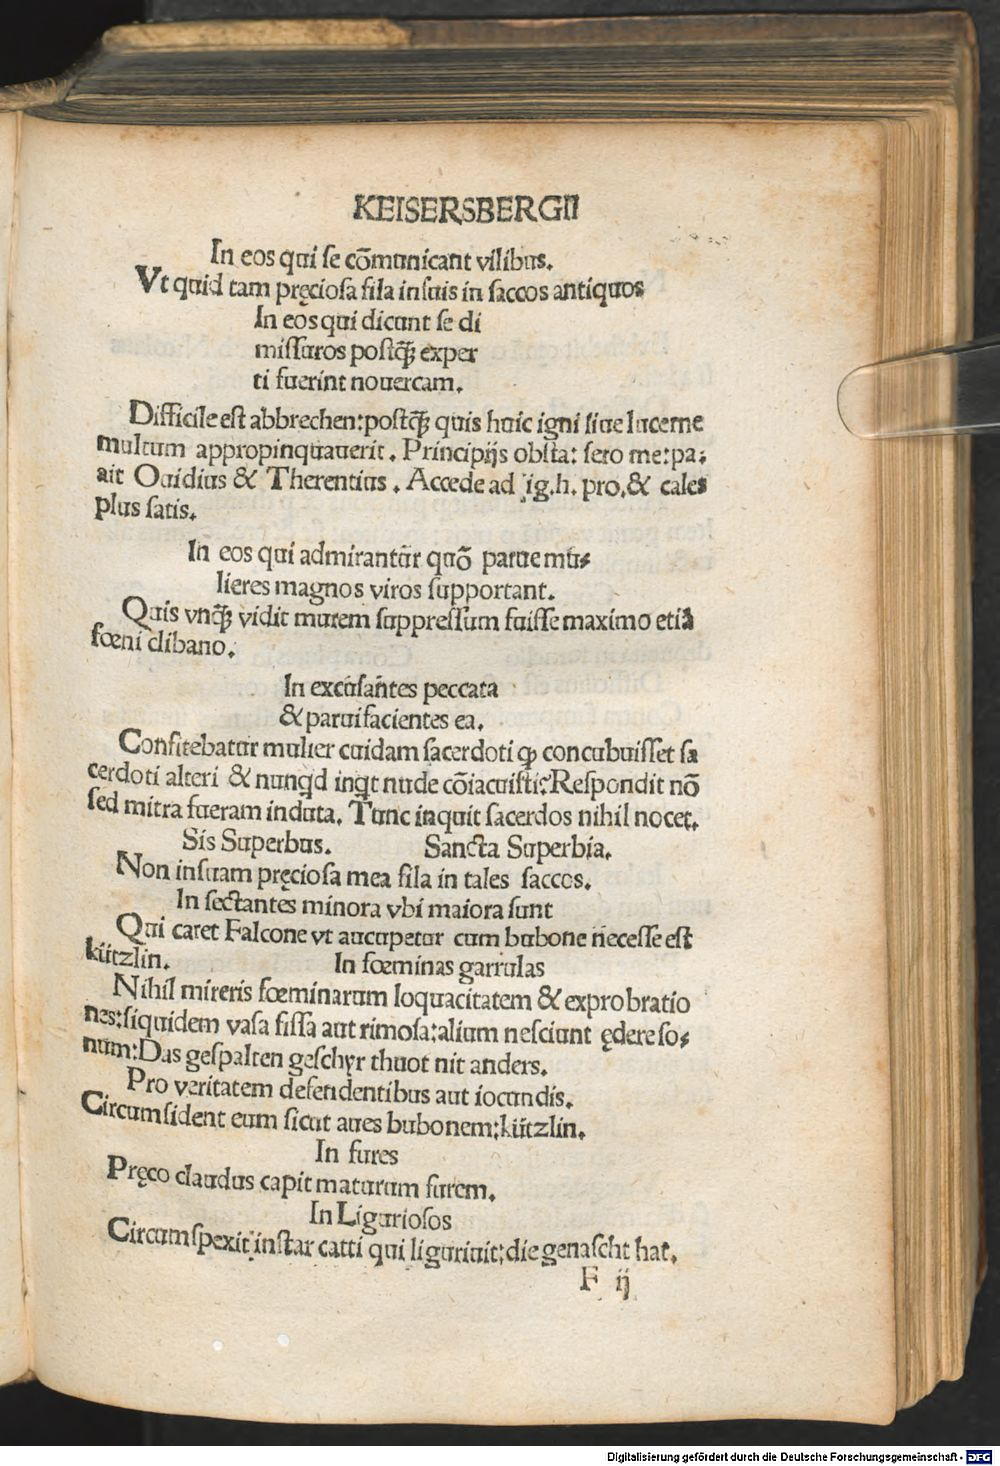 KEISERSBERGII
In eos qui se cōmunicant vilibus.
Vt quid tam pręciosa fila insuis in saccos antiquos
In eos qui dicunt se di
missuros postq̃ꝫ exper
ti fuerint nouercam.
Difficile est abbrechen: postq̃ꝫ quis huic igni siue lucerne
multum appropinquauerit. Principijs obsta: sero me: pa:
ait Ouidius & Therentius. Accede ad ig. h. pro. & cales
plus satis.
In eos qui admirantur̃ quō paruę mu⸗
lieres magnos viros supportant.
Quis vnq̃ꝫ vidit murem suppressum fuisse maximo etiā
fœni clibano.
In excusantes peccata
& paruifacientes ea.
Confitebatur mulier cuidam sacerdoti ꝙ concubuisset sa
cerdoti alteri & nunqd inqt nude cōiacuisti? Respondit nō
sed mitra fueram induta. Tunc inquit sacerdos nihil nocet.
Sis Superbus. Sancta Superbia.
Non insuam pręciosa mea fila in tales saccos.
In sectantes minora vbi maiora sunt
Qui caret Falcone vt aucupetur cum bubone necesse est
kützlin. In fœminas garrulas
Nihil mireris fœminarum loquacitatem & exprobratio
nes: siquidem vasa fissa aut rimosa: alium nesciunt ędere so⸗
num: Das gespalten geschyr thuot nit anders.
Pro veritatem defendentibus aut iocundis.
Circumsident eum sicut aues bubonem: kützlin.
In fures
Pręco claudus capit maturum furem.
In Liguriosos
Circumspexit instar catti qui liguriuit: die genascht hat.
F ij
Digitalisierung gefördert durch die Deutsche Forschungsgemeinschaft - DFG